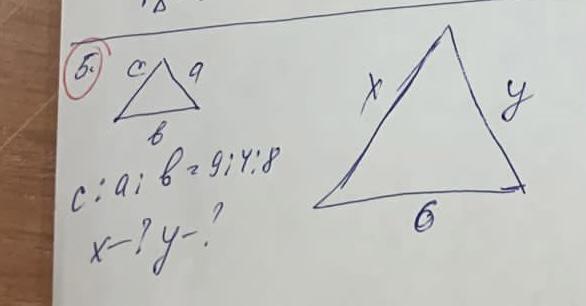 5.
c a
b
c : a : b = 9 : 4 : 8
x - ? y - ?
x y
6